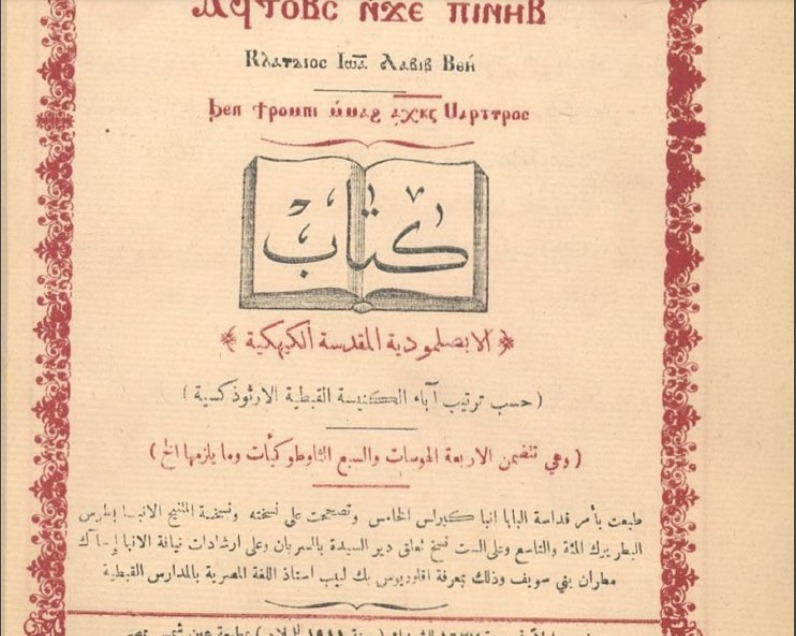 ⲁϥⲧⲟⲃⲥ ⲛ̀ϫⲉ ⲡⲓⲛⲏⲃ
Ⲕⲗⲁⲩⲇⲓⲟⲥ Ⲓⲱ̅ⲁ̅ Ⲗⲁⲃⲓⲃ Ⲃⲉⲏ̀
ϧⲉⲛ ϯⲣⲟⲙⲡⲓ ⲙ̀ⲙⲁϩ ⲁ̅ⲭⲕⲍ Ⲙⲁⲣⲧⲩⲣⲟⲥ
كتاب
﴿ الابصلمودية المقدسة الكيهكية ﴾
( حسب ترتيب آباء الكنيسة القبطية الارثوذكسية )
( وهي تتضمن الاربعة الهوسات والسبع الثاوطوكيات وما يلزمها الخ )
طبعت بأمر قداسة البابا انبا كيرلس الخامس وتصححت على نسخته ونسخة المتنيح الانبا بطرس
البطريرك المئة والتاسع وعلى الست نسخ تعلق دير السيدة بالسريان وعلى ارشادات نيافة الانبا إيساك
مطران بني سويف وذلك بمعرفة اقلوديوس بك لبيب استاذ اللغة المصرية بالمدارس القبطية